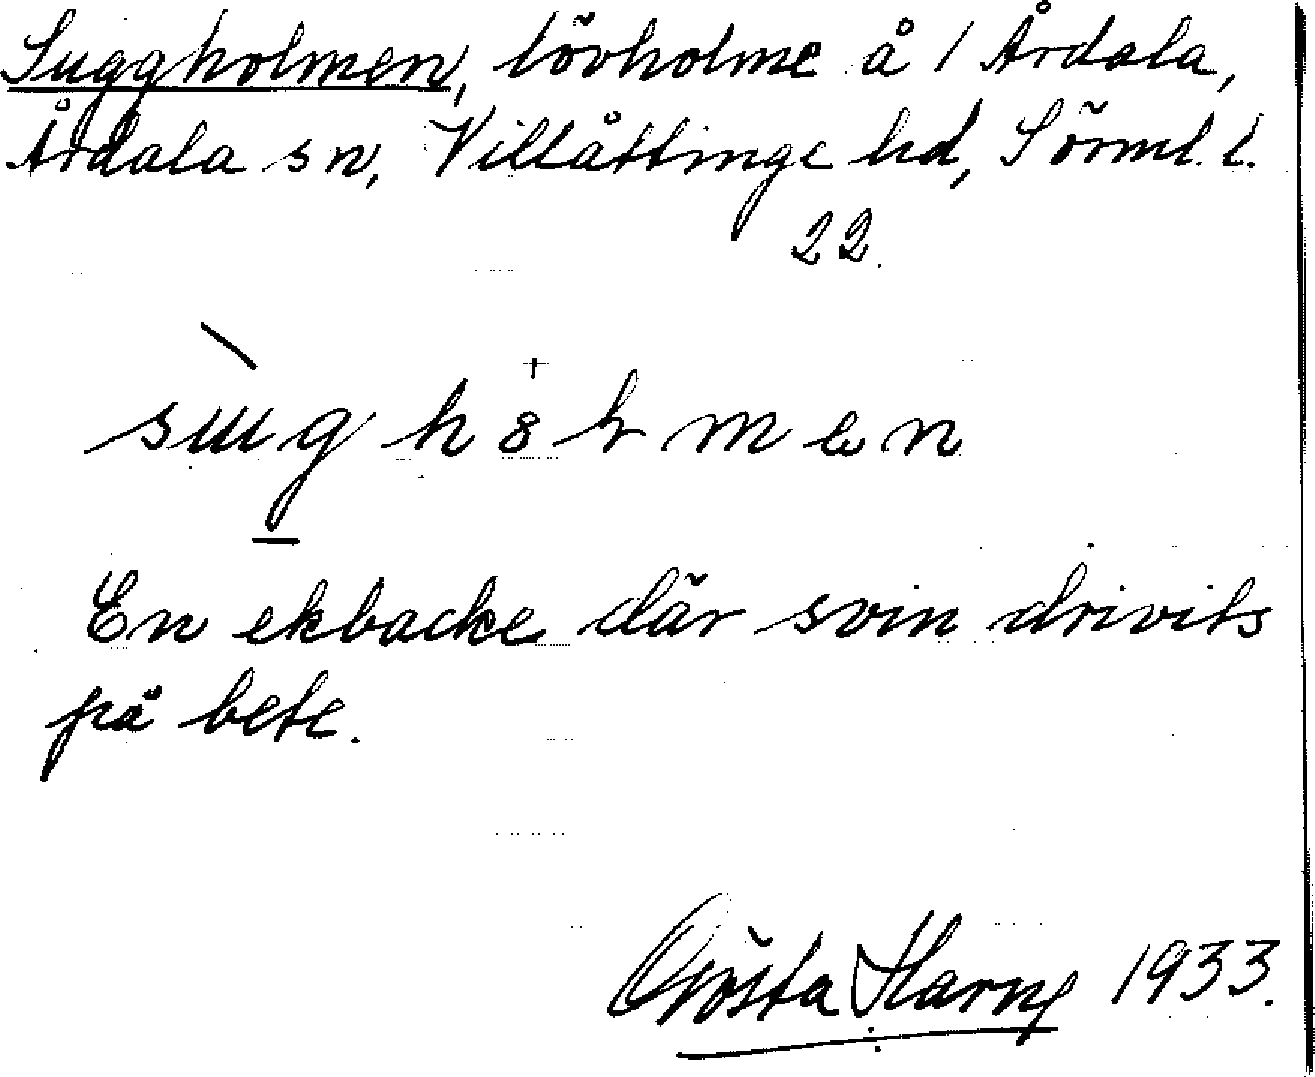 Suggholmen, lövholme å 1 Årdala,
Årdala sn, Villåttinge hd, Sörml. l.
22.
En ekbacke där svin drivits
på bete.
Gösta Harng 1933.